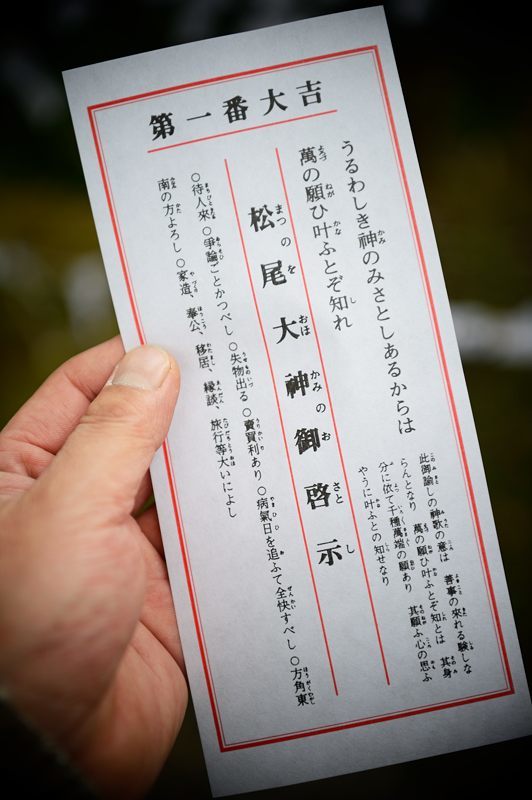 第一番大吉
うるわしき神のみさとしあるからは
萬の願ひ叶ふとぞ知れ
此御諭しの神歌の意は 善事の來れる験しな
らんとなり 萬の願ひ叶ふとぞ知とは 其身
分に依て千種萬端の願あり 其願ふ心の思ふ
やうに叶ふとの知せなり
松の尾大神の御啓示
○待人來 ○爭論ごとかつべし ○失物出る ○賣買利あり ○病氣日を追ふて全快すべし ○方角東
南の方よろし ○家造、奉公、移居、縁談、旅行等大いによし